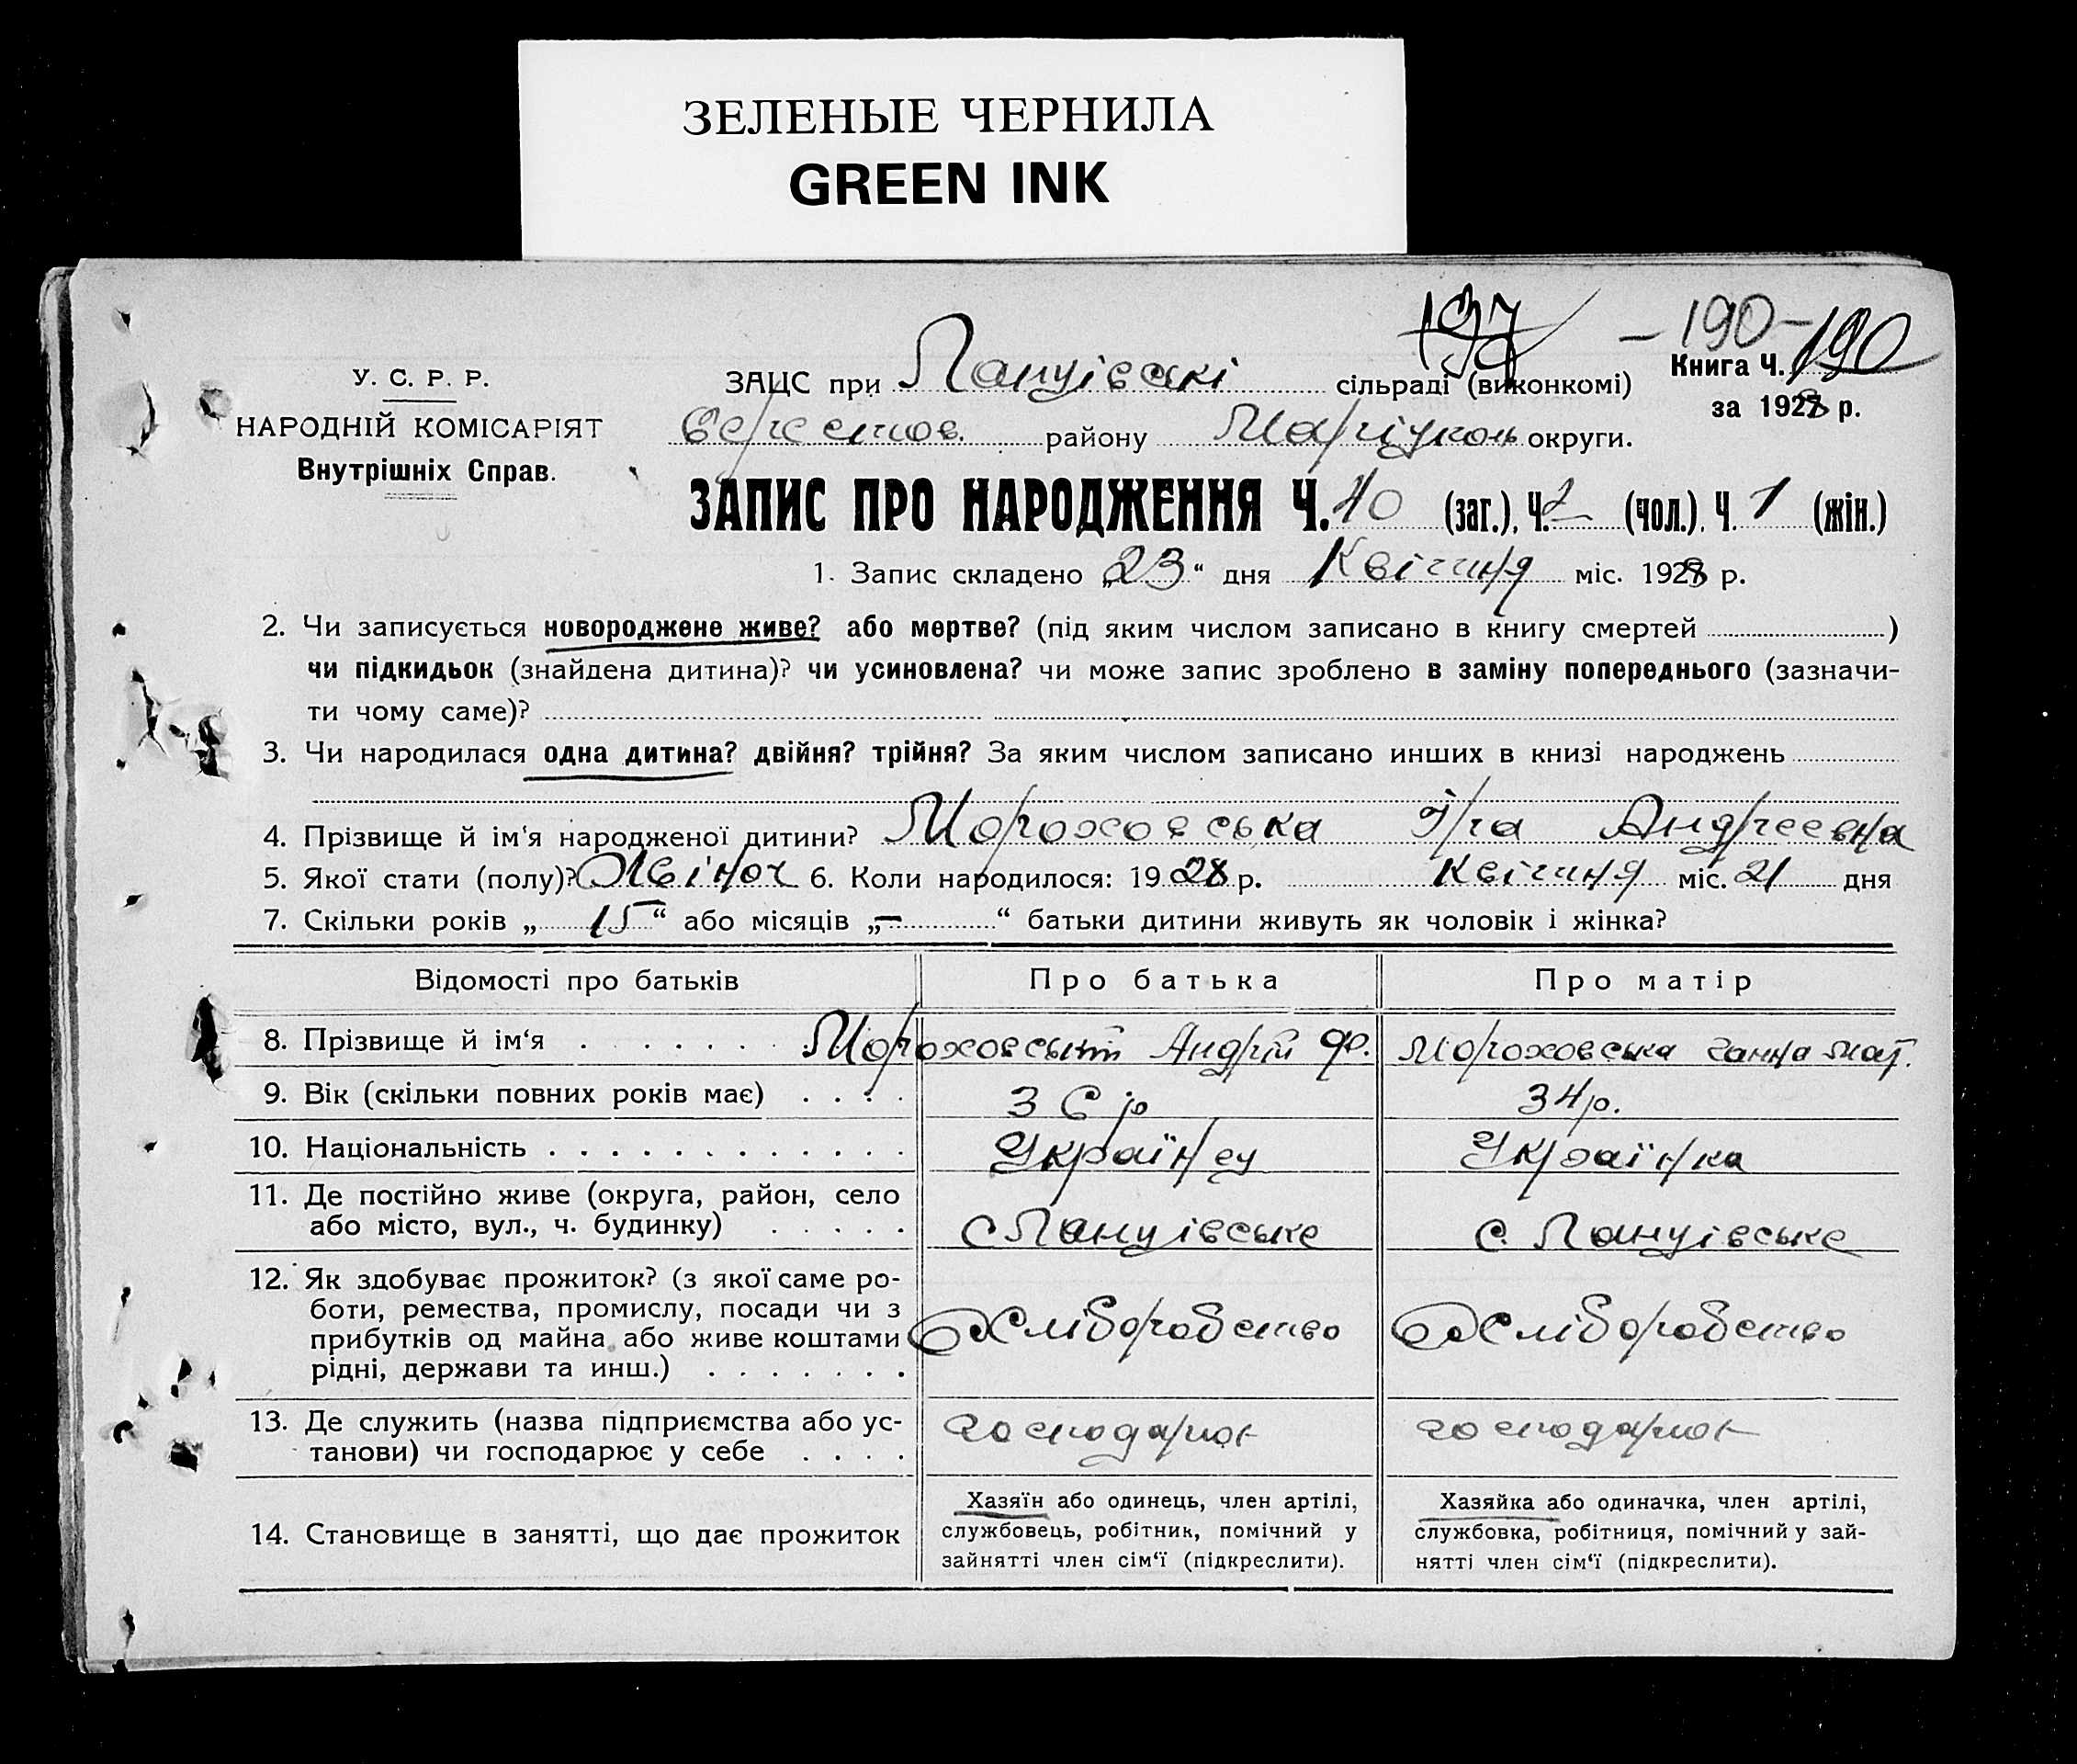 ЗЕЛЕНЫЕ ЧЕРНИЛА
GREEN INK
197 — 190 —
У. С. Р. Р.
НАРОДНІЙ КОМІСАРІЯТ
Внутрішніх Справ.
ЗАЦС при сільраді (виконкомі)
Книга Ч. 190
за 1928 р.
району Маріуполь округи.
ЗАПИС ПРО НАРОДЖЕННЯ Ч. (заг.), Ч. (чол.), Ч. 1 (жін.)
1. Запис складено „23“ дня Квітня міс. 1928 р.
2. Чи записується новороджене живе? або мертве? (під яким числом записано в книгу смертей )
чи підкидьок (знайдена дитина)? чи усиновлена? чи може запис зроблено в заміну попереднього (зазначи-
ти чому саме)?
3. Чи народилася одна дитина? двійня? трійня? За яким числом записано инших в книзі народжень
4. Прізвище й ім‘я народженої дитини? Мороховська Андреевна
5. Якої стати (полу)? Жвіноч 6. Коли народилося: 1928 р. Квітня міс. 21 дня
7. Скільки років „15“ або місяців „—“ батьки дитини живуть як чоловік і жінка?
Відомості про батьків Про батька Про матір
8. Прізвище й ім‘я Мороховський Андрій Фо. Мороховська Ганна Мат.
9. Вік (скільки повних років має) 36 р 34 р.
10. Національність Українец Українка
11. Де постійно живе (округа, район, село
або місто, вул., ч. будинку)
12. Як здобуває прожиток? (з якої саме ро-
боти, ремества, промислу, посади чи з
прибутків од майна або живе коштами
рідні, держави та инш.) Хліборобство Хліборобство
13. Де служить (назва підприємства або ус-
танови) чи господарює у себе
14. Становище в занятті, що дає прожиток
Хазяїн або одинець, член артілі,
службовець, робітник, помічний у
зайнятті член сім‘ї (підкреслити).
Хазяйка або одиначка, член артілі,
службовка, робітниця, помічний у зай-
нятті член сім‘ї (підкреслити).